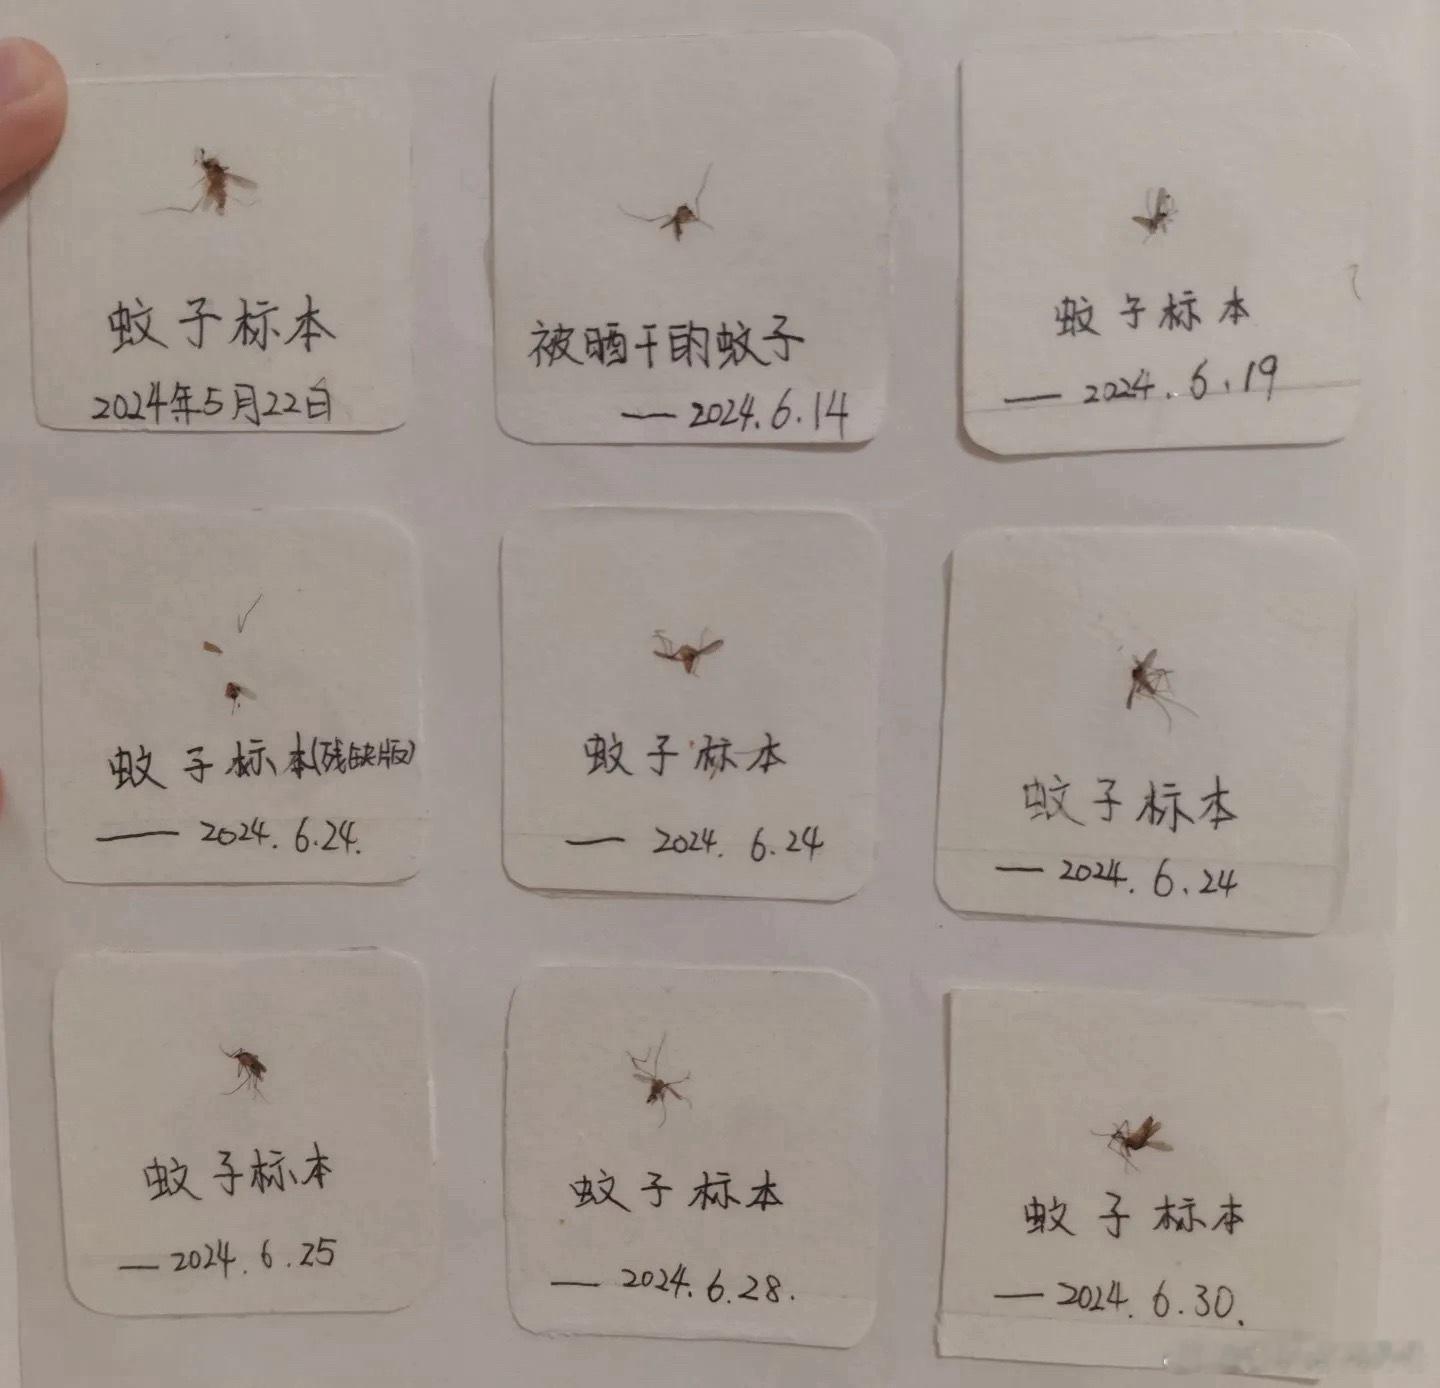 蚊子标本
2024年5月22日
被晒干的蚊子
—2024.6.14
蚊子标本
—2024.6.19
蚊子标本(残缺版)
—2024.6.24.
蚊子标本
—2024.6.24
蚊子标本
—2024.6.24
蚊子标本
—2024.6.25
蚊子标本
—2024.6.28.
蚊子标本
—2024.6.30.